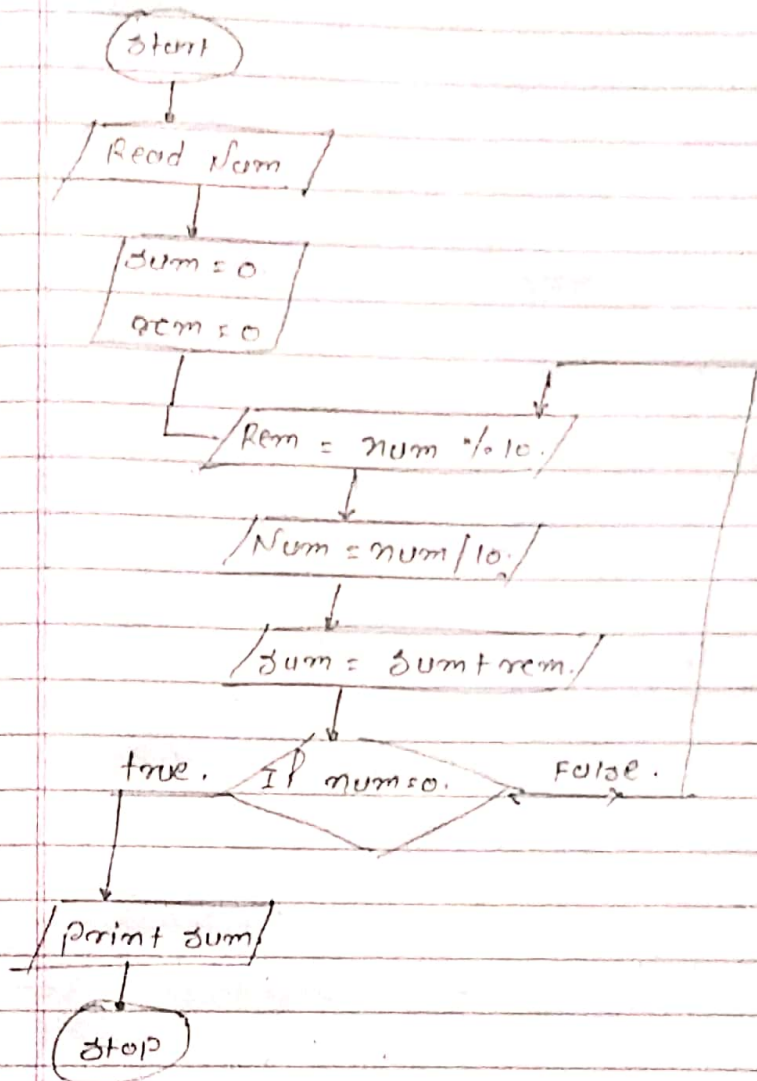 Start
Read Num
sum = 0
rem = 0
Rem = num % 10.
Num = num / 10.
sum = sum + rem.
true. If num = 0. False.
print sum
stop